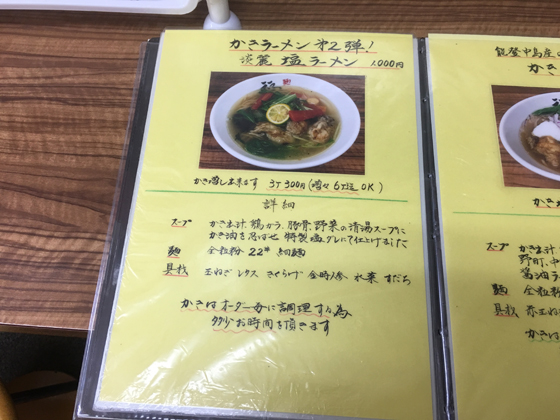 かきラーメン第2弾!
淡麗 塩ラーメン 1,000円
かき増し出来ます 3ケ300円(増々6ケ迄OK)
詳細
スープ かき煮汁、鶏ガラ、豚骨、野菜の清湯スープに
かき油を忍ばせ 特製塩ダレにて仕上げました
麺 全粒粉 22# 細麺
具材 玉ねぎ レタス きくらげ 金時人参 水菜 すだち
かきはオーダー毎に調理する為
多少お時間を頂きます
能登中島産
かき
かき
スープ かき煮汁
野町、中
醤油ラ
麺 全粒粉
具材 赤玉ね
かきは